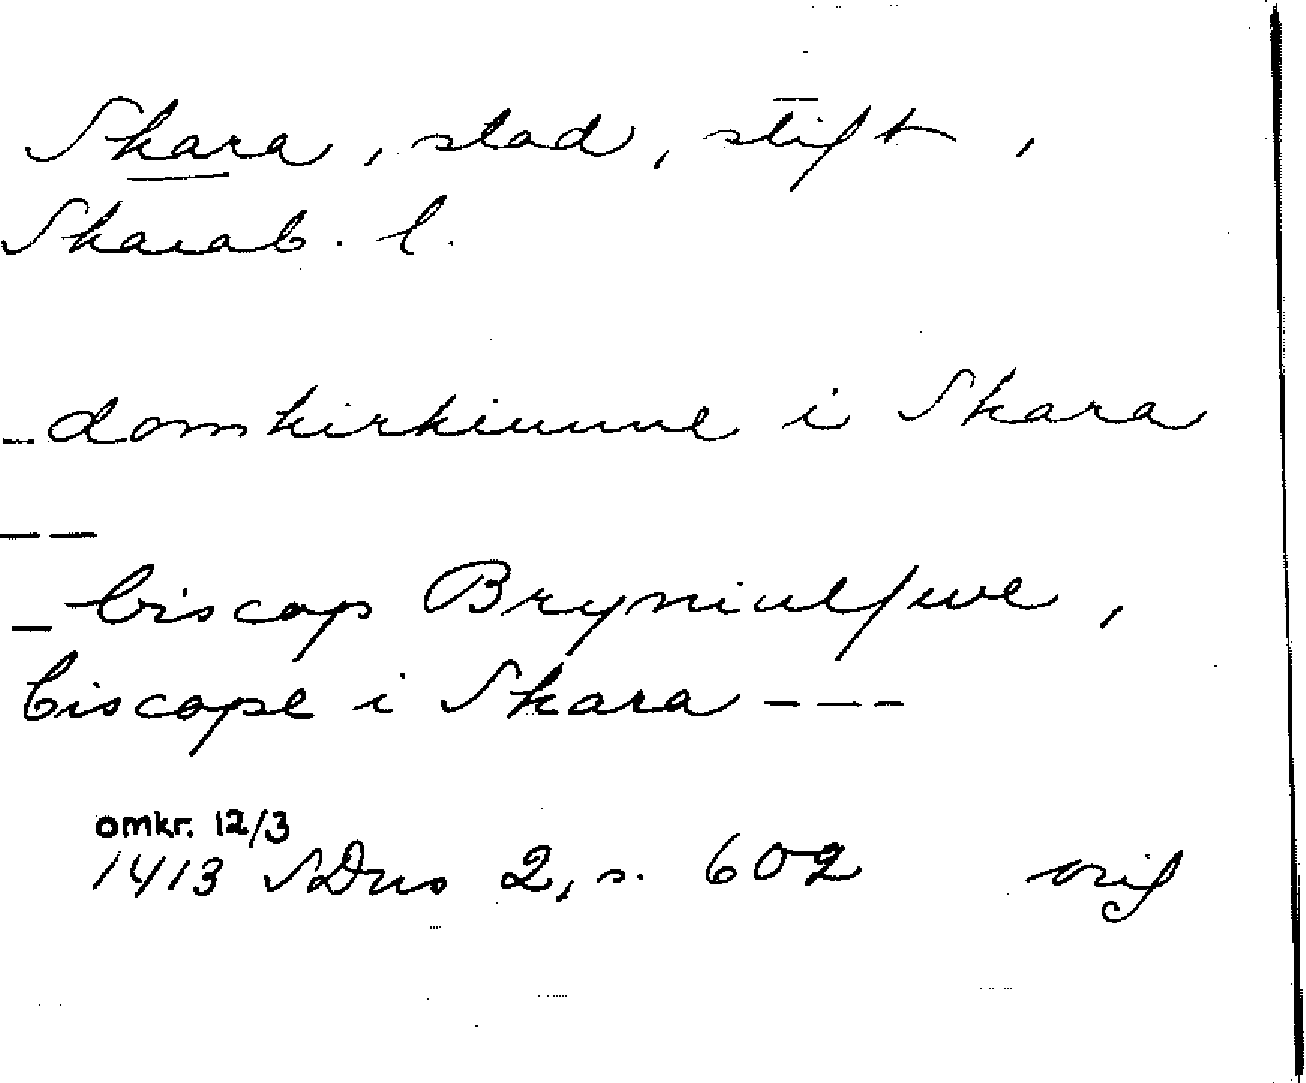 Skara, stad, stift,
Skarab. l.
_ domkirkiunne i Skara
---
_ biscop Bryniulfwe,
biscope i Skara ---
omkr. 12/3
1413 SDns 2, s. 602 orig